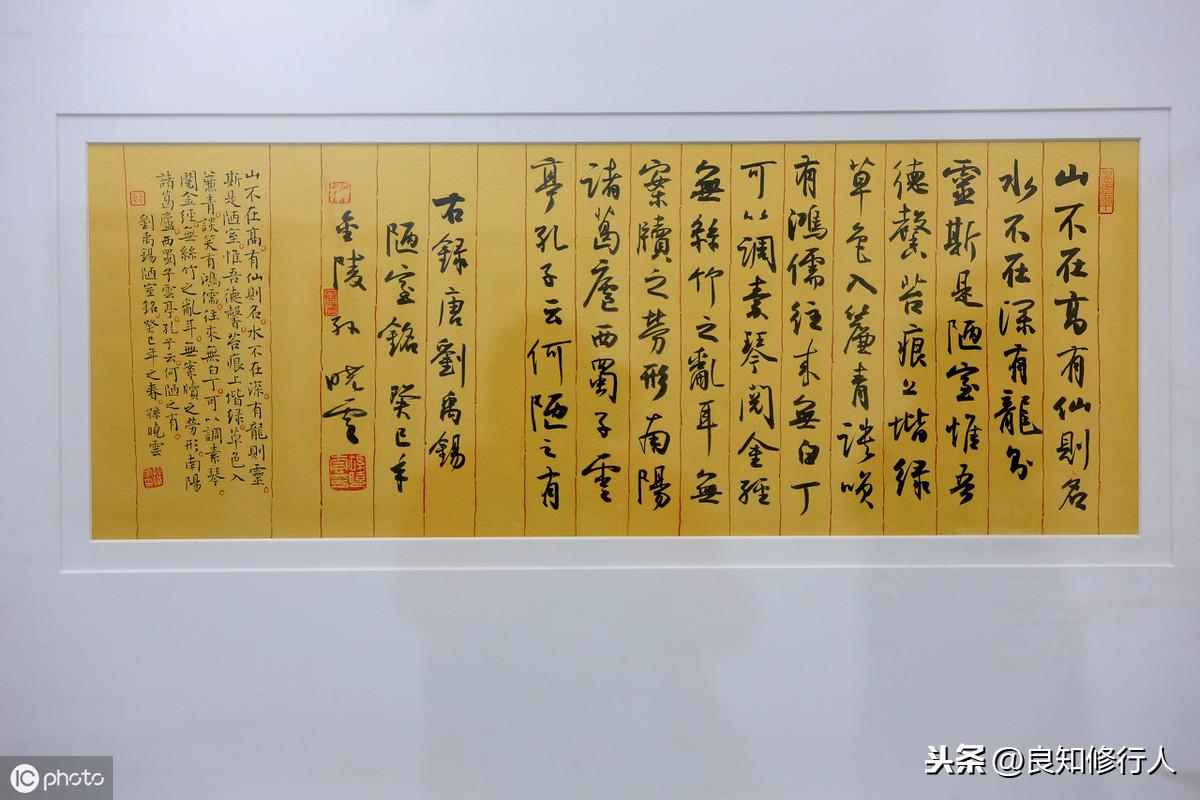 山不在高有仙則名
水不在深有龍則
靈斯是陋室惟吾
德馨苔痕上堦綠
草色入簾青談笑
有鴻儒往來無白丁
可以調素琴閱金經
無絲竹之亂耳無
案牘之勞形南陽
諸葛廬西蜀子雲
亭孔子云何陋之有
右録唐劉禹錫
陋室銘癸巳年
金陵孫曉雲
山不在高。有仙則名。水不在深。有龍則靈。
斯是陋室。惟吾德馨。苔痕上堦緑。草色入
簾青。談笑有鴻儒。往來無白丁。可以調素琴。
閱金經。無絲竹之亂耳。無案牘之勞形。南陽
諸葛廬。西蜀子雲亭。孔子云。何陋之有。
劉禹錫陋室銘。癸巳年之春。孫曉雲
IC photo
头条 @良知修行人